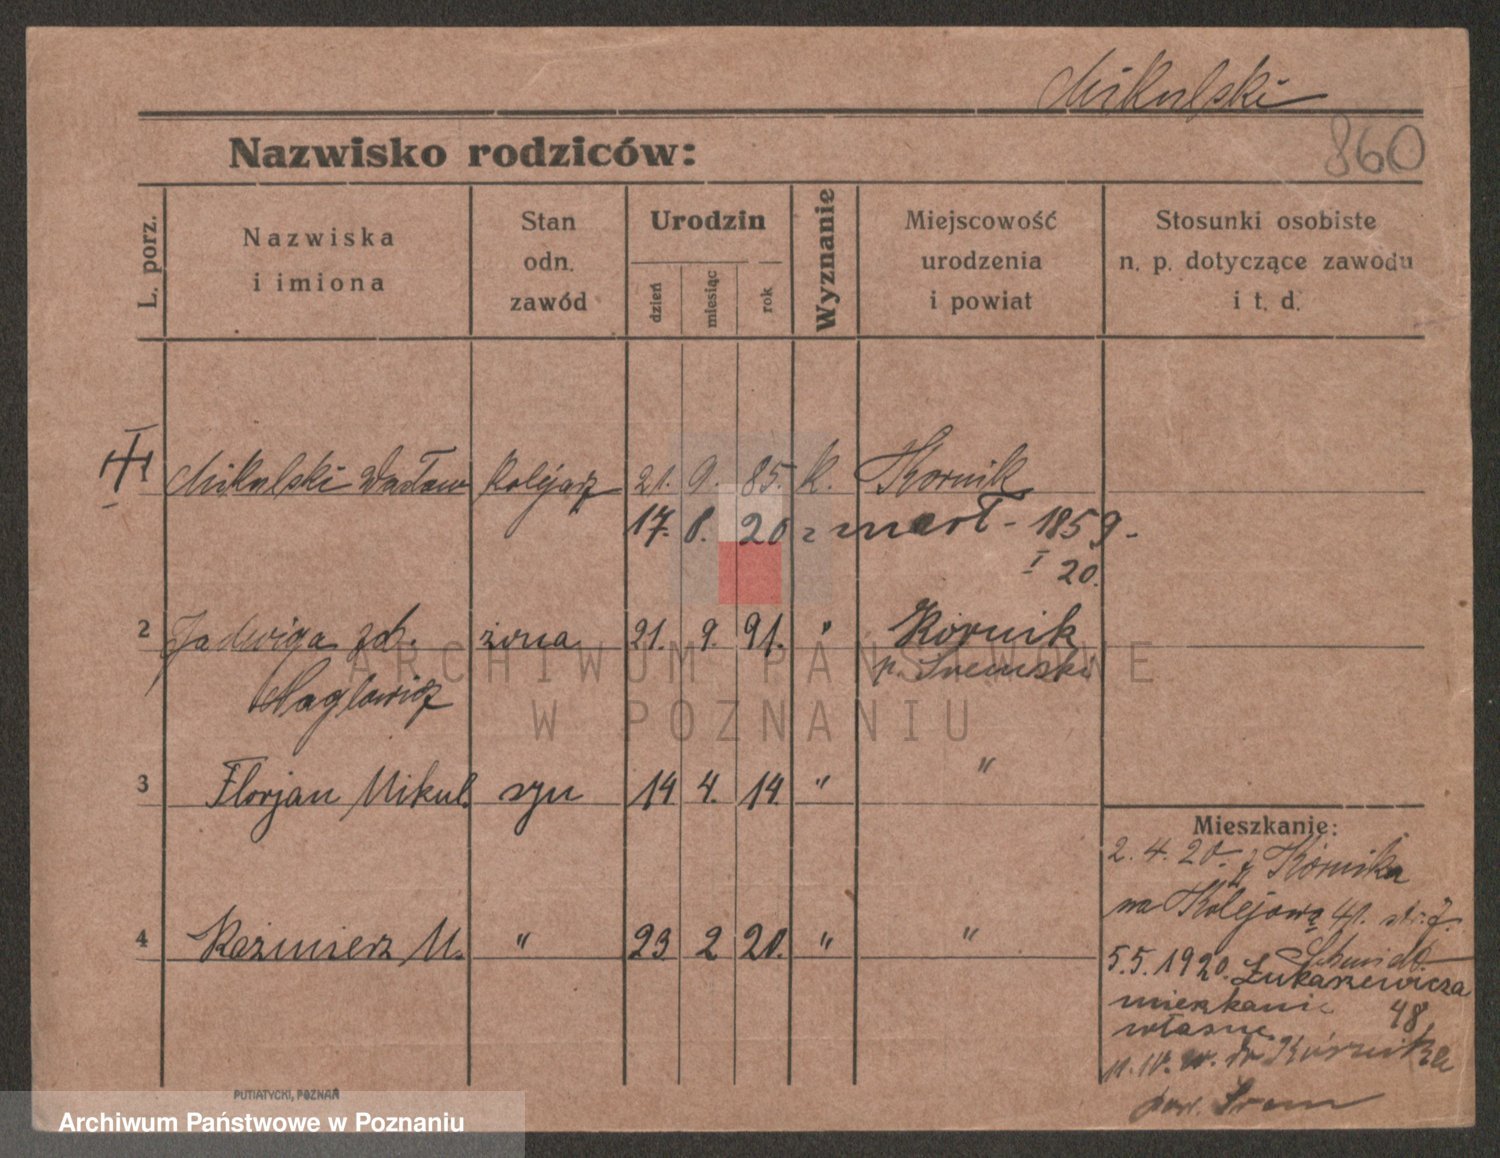 Mikulski
860
Nazwisko rodziców:
L. porz.
Nazwiska
i imiona
Stan
odn.
zawód
Urodzin
dzień
miesiąc
rok
Wyznanie
Miejscowość
urodzenia
i powiat
Stosunki osobiste
n. p. dotyczące zawodu
i t. d.
Mikulski Wacław kolejarz 21. 9. 85. k. Kornik
17. 8. 20 zmarł - 1859 -
I 20.
2 Jadwiga żona 21. 9. 91. " Kórnik
p. Śremski
3 Florjan Mikul. syn 14 4. 14. " "
4 Kaźmierz M. " 23 2 20. " "
Mieszkanie:
2. 4. 20. z Kórnika
na Kolejową 41. str. 7.
Schmidt
5.5.1920. Łukaszewicza
mieszkanie 48
własne
do Kórnika
pow. Śrem
PUTIATYCKI, POZNAŃ
ARCHIWUM PAŃSTWOWE
W POZNANIU
Archiwum Państwowe w Poznaniu